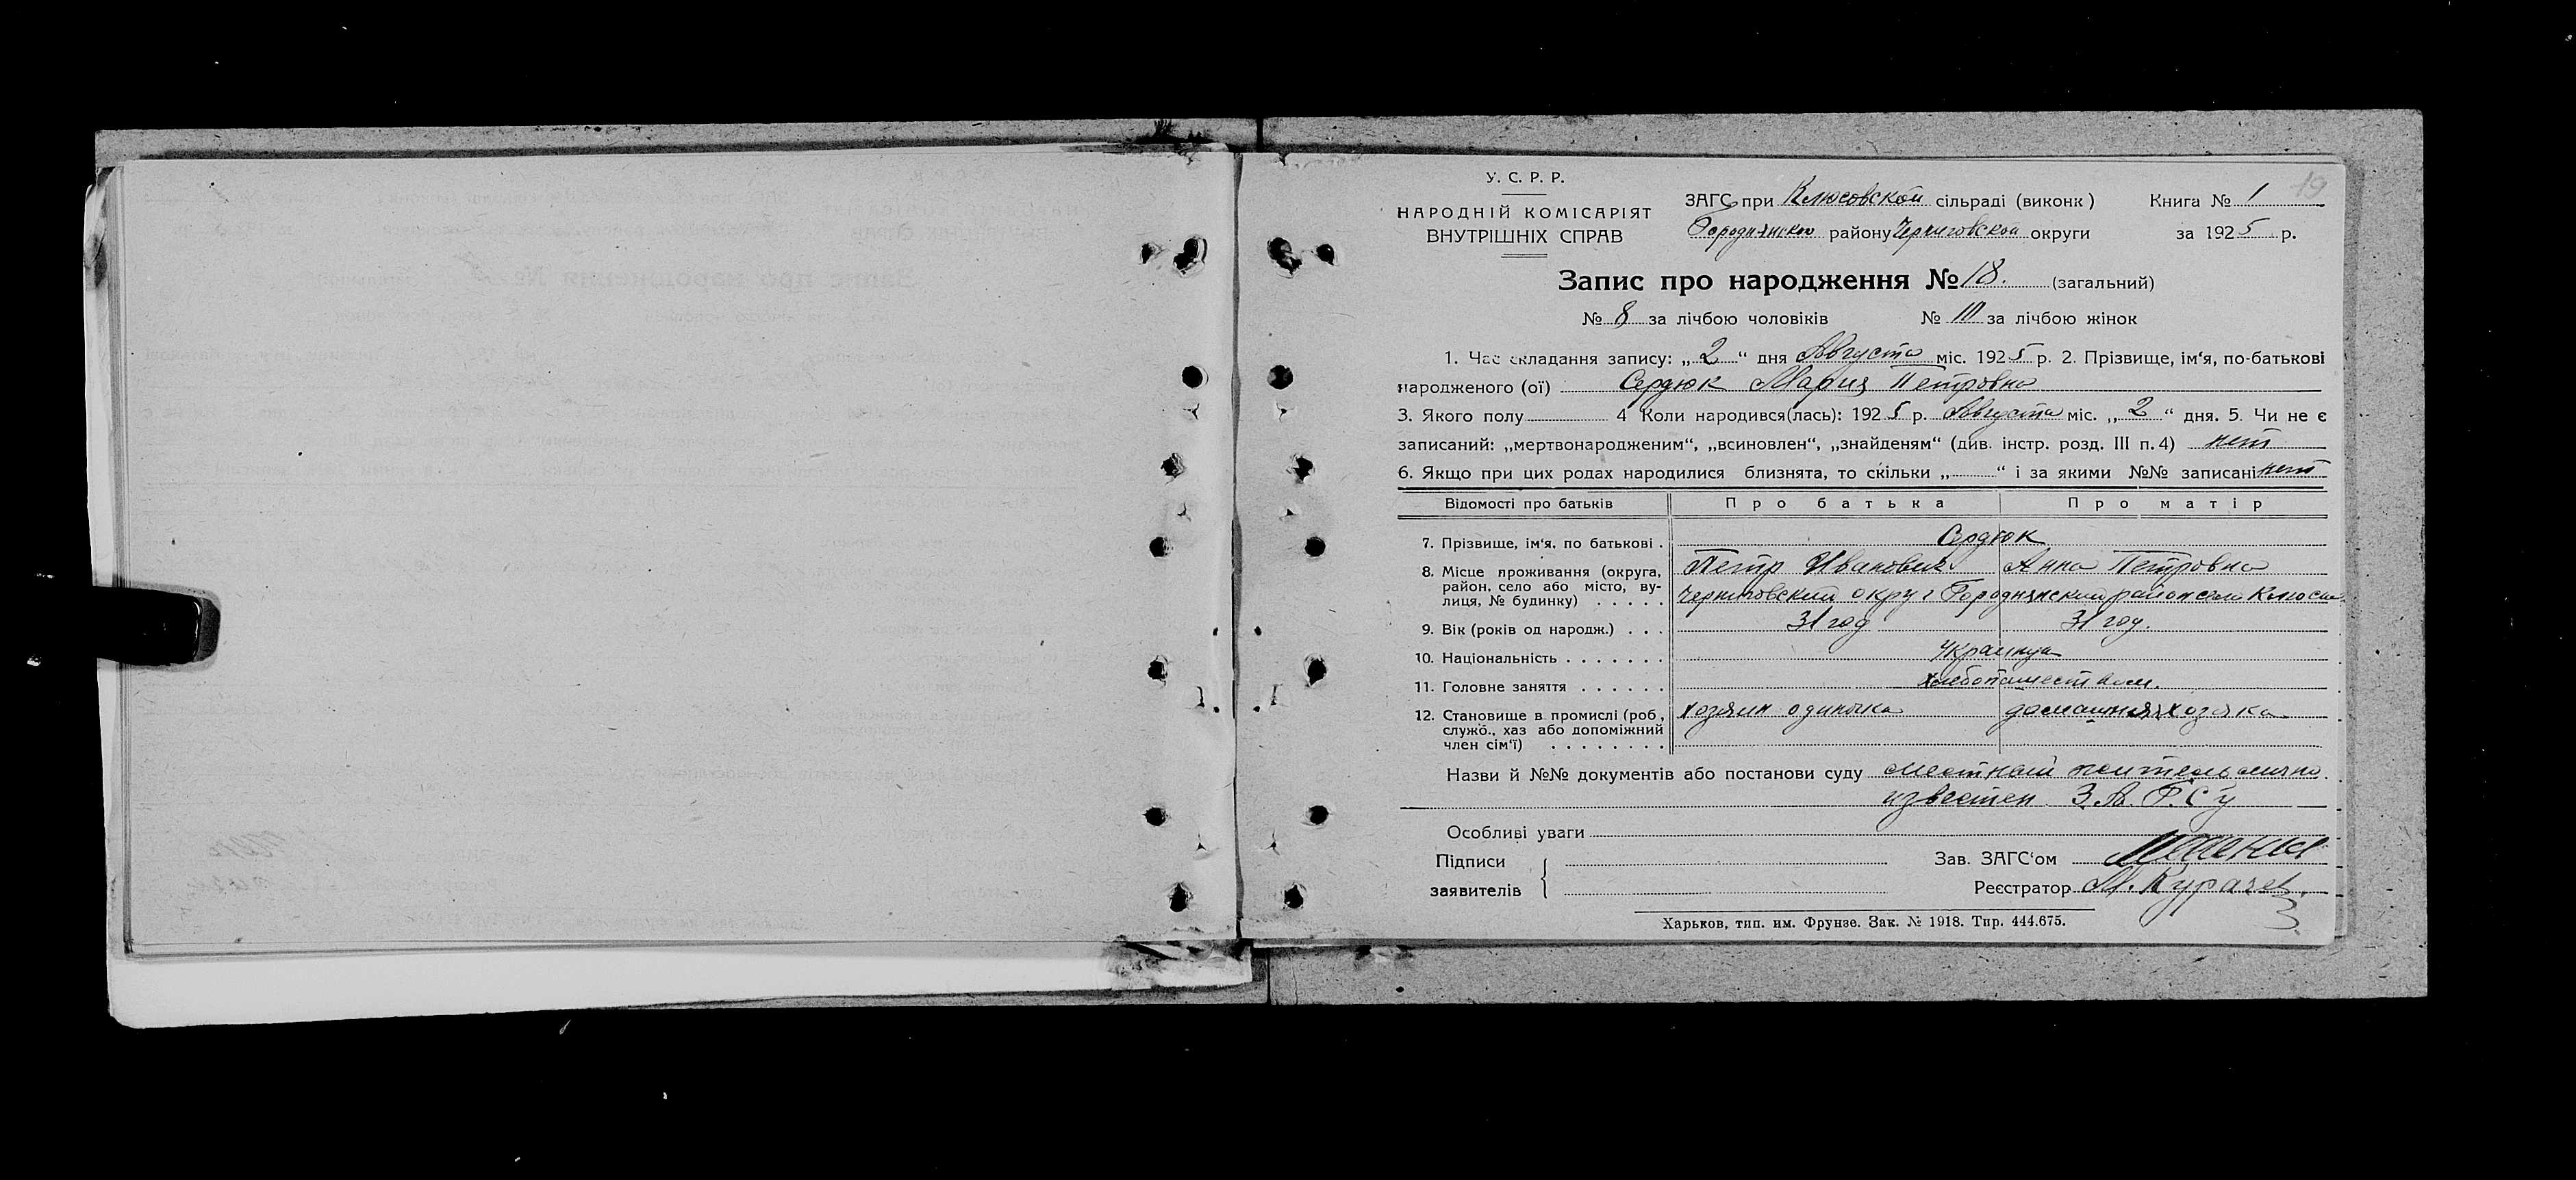 У. С. Р. Р.
НАРОДНІЙ КОМІСАРІЯТ
ВНУТРІШНІХ СПРАВ
ЗАГС при Клюсовской сільраді (виконк) Книга № 1 19
Городнянског району Черниговской округи за 1925 р.
Запис про народження № 18. (загальний)
№ 8 за лічбою чоловіків № III за лічбою жінок
1. Час складання запису: „2“ дня Августа міс. 1925 р. 2. Прізвище, ім‘я, по-батькові
народженого (ої) Сердюк Мария Петровна
3. Якого полу 4 Коли народився(лась): 1925 р. Августа міс. „2“ дня. 5. Чи не є
записаний: „мертвонародженим“, „всиновлен“, „знайденям“ (див. інстр. розд. III п. 4) нет
6. Якщо при цих родах народилися близнята, то скільки „ “ і за якими №№ записані нет
Відомості про батьків Про батька Про матір
7. Прізвище, ім‘я, по батькові . Сердюк
Петр Иванович Анна Петровна
8. Місце проживання (округа,
район, село або місто, ву-
лиця, № будинку) . . . . . Черниговский округ Городнянский район село Клюсы
9. Вік (років од народж.) . . . 31 год 31 год.
10. Національність . . . . . . . Украинца
11. Головне заняття . . . . . . хлебопашеством.
12. Становище в промислі (роб., хозяин одиночка домашняя хозяка
служб., хаз або допоміжний
член сім‘ї) . . . . . . . .
Назви й №№ документів або постанови суду местный житель лично
известен З. А. Г. С у
Особливі уваги
Підписи Зав. ЗАГС‘ом
заявителів Реєстратор М. Курачев.
Харьков, тип. им. Фрунзе. Зак. № 1918. Тир. 444.675.